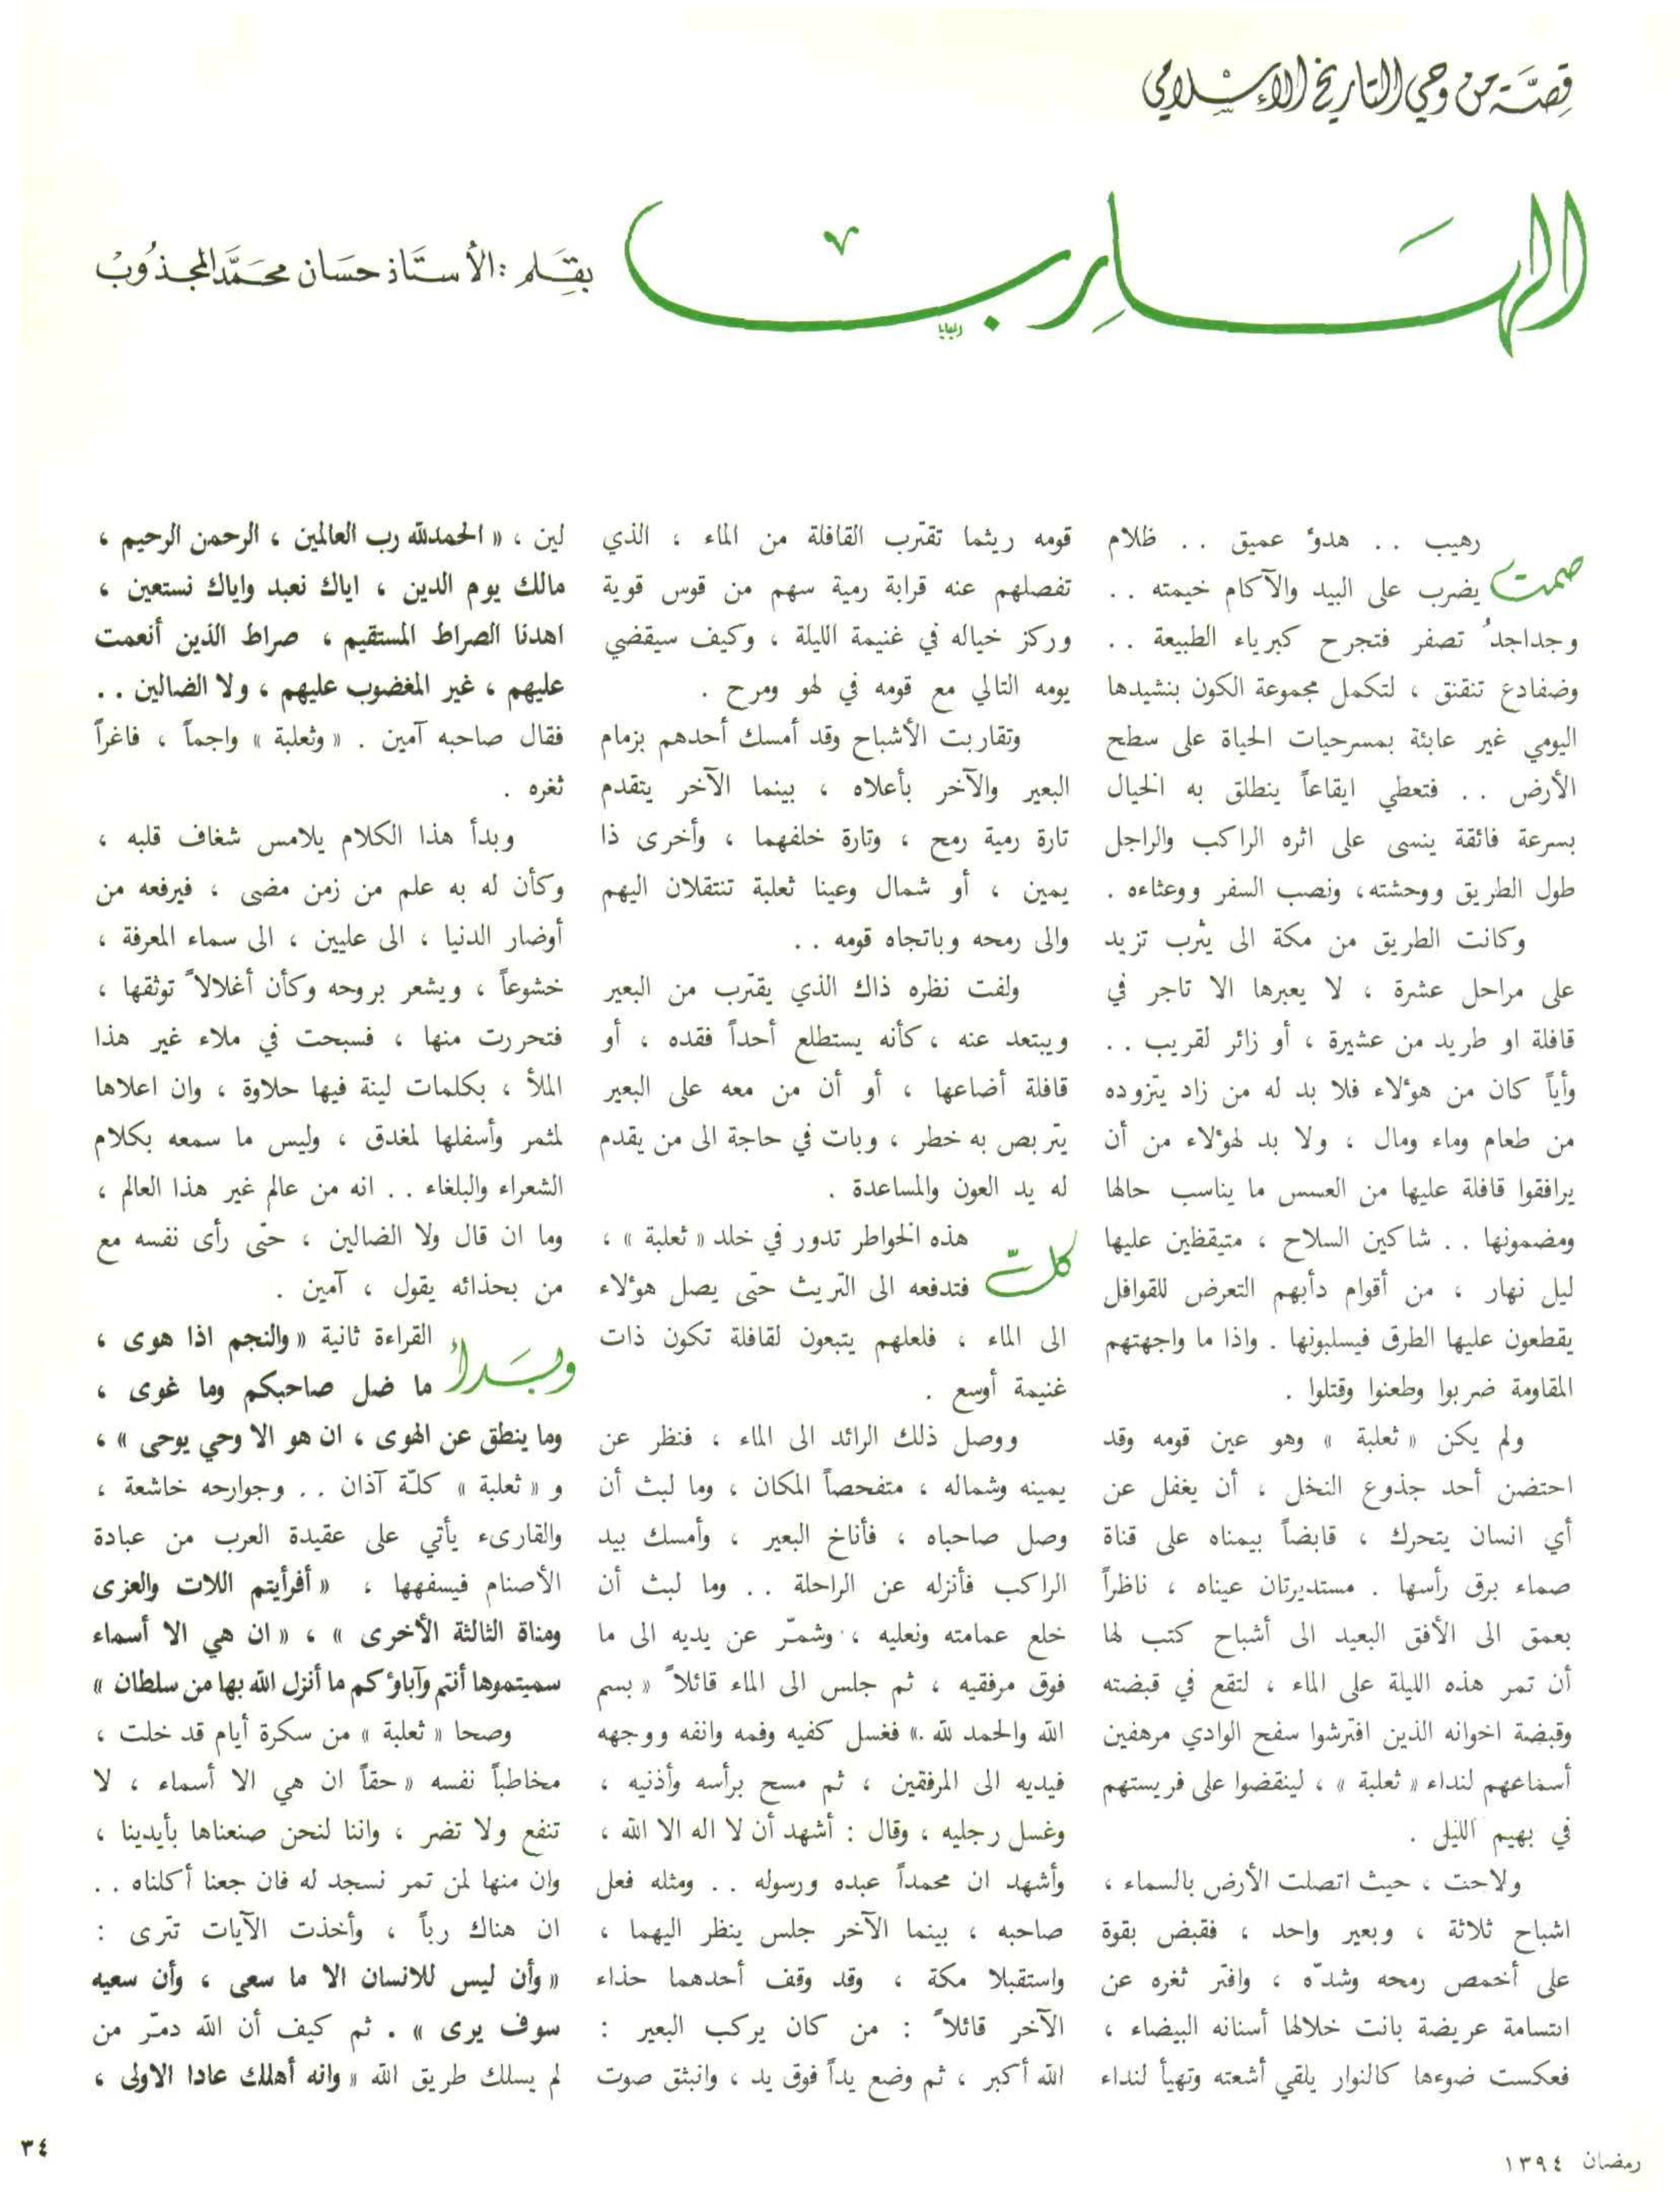 قصة من وحي التاريخ الإسلامي
الهارب
بقلم : الأستاذ حسان محمد المجذوب
صمت رهيب . . هدوٴ عميق . . ظلام
يضرب على البيد والآكام خيمته . .
وجداجدُ تصفر فتجرح كبرياء الطبيعة . .
وضفادع تنقنق ، لتكمل مجموعة الكون بنشيدها
اليومي غير عابئة بمسرحيات الحياة على سطح
الأرض . . فتعطي ايقاعاً ينطلق به الخيال
بسرعة فائقة ينسى على اثره الراكب والراجل
طول الطريق ووحشته، ونصب السفر ووعثاءه .
وكانت الطريق من مكة الى يثرب تزيد
على مراحل عشرة ، لا يعبرها الا تاجر في
قافلة او طريد من عشيرة ، أو زائر لقريب . .
وأياً كان من هؤلاء فلا بد له من زاد يتزوده
من طعام وماء ومال ، ولا بد لهؤلاء من أن
يرافقوا قافلة عليها من العسس ما يناسب حالها
ومضمونها . . شاكين السلاح ، متيقظين عليها
ليل نهار ، من أقوام دأبهم التعرض للقوافل
يقطعون عليها الطرق فيسلبونها . واذا ما واجهتهم
المقاومة ضربوا وطعنوا وقتلوا .
ولم يكن « ثعلبة » وهو عين قومه وقد
احتضن أحد جذوع النخل ، أن يغفل عن
أي انسان يتحرك ، قابضاً بيمناه على قناة
صماء برق رأسها . مستديرتان عيناه ، ناظراً
بعمق الى الأفق البعيد الى أشباح كتب لها
أن تمر هذه الليلة على الماء ، لتقع في قبضته
وقبضة اخوانه الذين افترشوا سفح الوادي مرهفين
أسماعهم لنداء « ثعلبة » ، لينقضوا على فريستهم
في بهيم الليل .
ولاحت ، حيث اتصلت الأرض بالسماء ،
اشباح ثلاثة ، وبعير واحد ، فقبض بقوة
على أخمص رمحه وشدّه ، وافتر ثغره عن
ابتسامة عريضة بانت خلالها أسنانه البيضاء ،
فعكست ضوءها كالنوار يلقي أشعته وتهيأ لنداء
قومه ريثما تقترب القافلة من الماء ، الذي
تفصلهم عنه قرابة رمية سهم من قوس قوية
وركز خياله في غنيمة الليلة ، وكيف سيقضي
يومه التالي مع قومه في لهو ومرح .
وتقاربت الأشباح وقد أمسك أحدهم بزمام
البعير والآخر بأعلاه ، بينما الآخر يتقدم
تارة رمية رمح ، وتارة خلفهما ، وأخرى ذا
يمين ، أو شمال وعينا ثعلبة تنتقلان اليهم
والى رمحه وباتجاه قومه . .
ولفت نظره ذاك الذي يقترب من البعير
ويبتعد عنه ، كأنه يستطلع أحداً فقده ، أو
قافلة أضاعها ، أو أن من معه على البعير
يتربص به خطر ، وبات في حاجة الى من يقدم
له يد العون والمساعدة .
كلّ هذه الخواطر تدور في خلد « ثعلبة » ،
فتدفعه الى التريث حتى يصل هؤلاء
الى الماء ، فلعلهم يتبعون لقافلة تكون ذات
غنيمة أوسع .
ووصل ذلك الرائد الى الماء ، فنظر عن
يمينه وشماله ، متفحصاً المكان ، وما لبث أن
وصل صاحباه ، فأناخ البعير ، وأمسك بيد
الراكب فأنزله عن الراحلة . . وما لبث أن
خلع عمامته ونعليه ، وشمّر عن يديه الى ما
فوق مرفقيه ، ثم جلس الى الماء قائلاً « بسم
الله والحمد لله .» فغسل كفيه وفمه وانفه ووجهه
فيديه الى المرفقين ، ثم مسح برأسه وأذنيه ،
وغسل رجليه ، وقال : أشهد أن لا اله الا الله ،
وأشهد ان محمداً عبده ورسوله . . ومثله فعل
صاحبه ، بينما الآخر جلس ينظر اليهما ،
واستقبلا مكة ، وقد وقف أحدهما حذاء
الآخر قائلاً : من كان يركب البعير :
الله أكبر ، ثم وضع يداً فوق يد ، وانبثق صوت
لين ، « الحمدلله رب العالمين ، الرحمن الرحيم ،
مالك يوم الدين ، اياك نعبد واياك نستعين ،
اهدنا الصراط المستقيم ، صراط الذين أنعمت
عليهم ، غير المغضوب عليهم ، ولا الضالين . .
فقال صاحبه آمين . « وثعلبة » واجماً ، فاغراً
ثغره .
وبدأ هذا الكلام يلامس شغاف قلبه ،
وكأن له به علم من زمن مضى ، فيرفعه من
أوضار الدنيا ، الى عليين ، الى سماء المعرفة ،
خشوعاً ، ويشعر بروحه وكأن أغلالاً توثقها ،
فتحررت منها ، فسبحت في ملاء غير هذا
الملأ ، بكلمات لينة فيها حلاوة ، وان اعلاها
لمثمر وأسفلها لمغدق ، وليس ما سمعه بكلام
الشعراء والبلغاء . . انه من عالم غير هذا العالم ،
وما ان قال ولا الضالين ، حتى رأى نفسه مع
من بحذائه يقول ، آمين .
وبدأ القراءة ثانية « والنجم اذا هوى ،
ما ضل صاحبكم وما غوى ،
وما ينطق عن الهوى ، ان هو الا وحي يوحى » ،
و « ثعلبة » كلّة آذان . . وجوارحه خاشعة ،
والقارىء يأتي على عقيدة العرب من عبادة
الأصنام فيسفهها ، « أفرأيتم اللات والعزى
ومناة الثالثة الأخرى » ، « ان هي الا أسماء
سميتموها أنتم وآباؤكم ما أنزل الله بها من سلطان »
وصحا « ثعلبة » من سكرة أيام قد خلت ،
مخاطباً نفسه « حقاً ان هي الا أسماء ، لا
تنفع ولا تضر ، واننا لنحن صنعناها بأيدينا ،
وان منها لمن تمر نسجد له فان جعنا أكلناه . .
ان هناك رباً ، وأخذت الآيات تترى :
« وأن ليس للانسان الا ما سعى ، وأن سعيه
سوف يرى » . ثم كيف أن الله دمّر من
لم يسلك طريق الله « وانه أهلك عادا الاولى ،
رمضان ١٣٩٤
٣٤